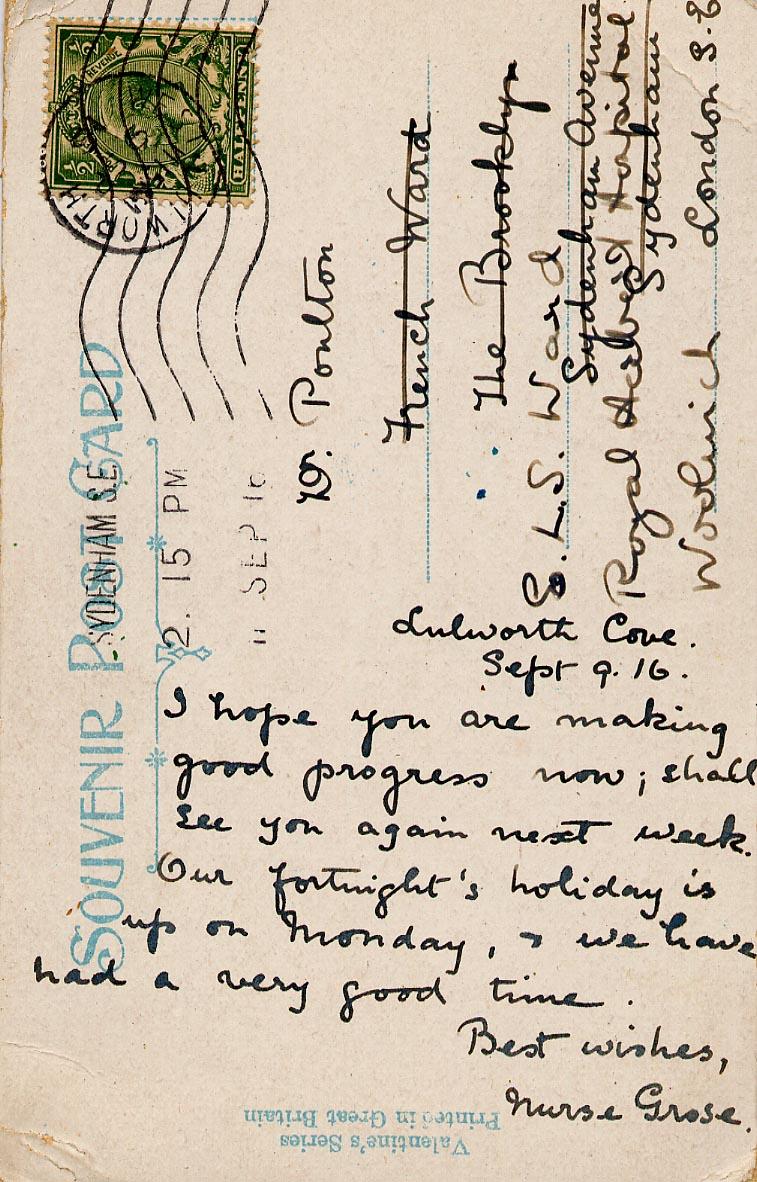 SOUVENIR POST CARD
SYDENHAM S.E.
2. 15 PM
11 SEP 16
REVENUE
HALFPENNY
Dr. Poulton
French Ward
The Brooklyn
S.L.S. Ward
Sydenham Avenue
Royal Hospital
Sydenham
Woolwich London S.E
Lulworth Cove.
Sept 9. 16.
I hope you are making
good progress now; shall
see you again next week.
Our fortnight's holiday is
up on Monday, & we have
had a very good time.
Best wishes,
Nurse Grose.
Valentine's Series
Printed in Great Britain